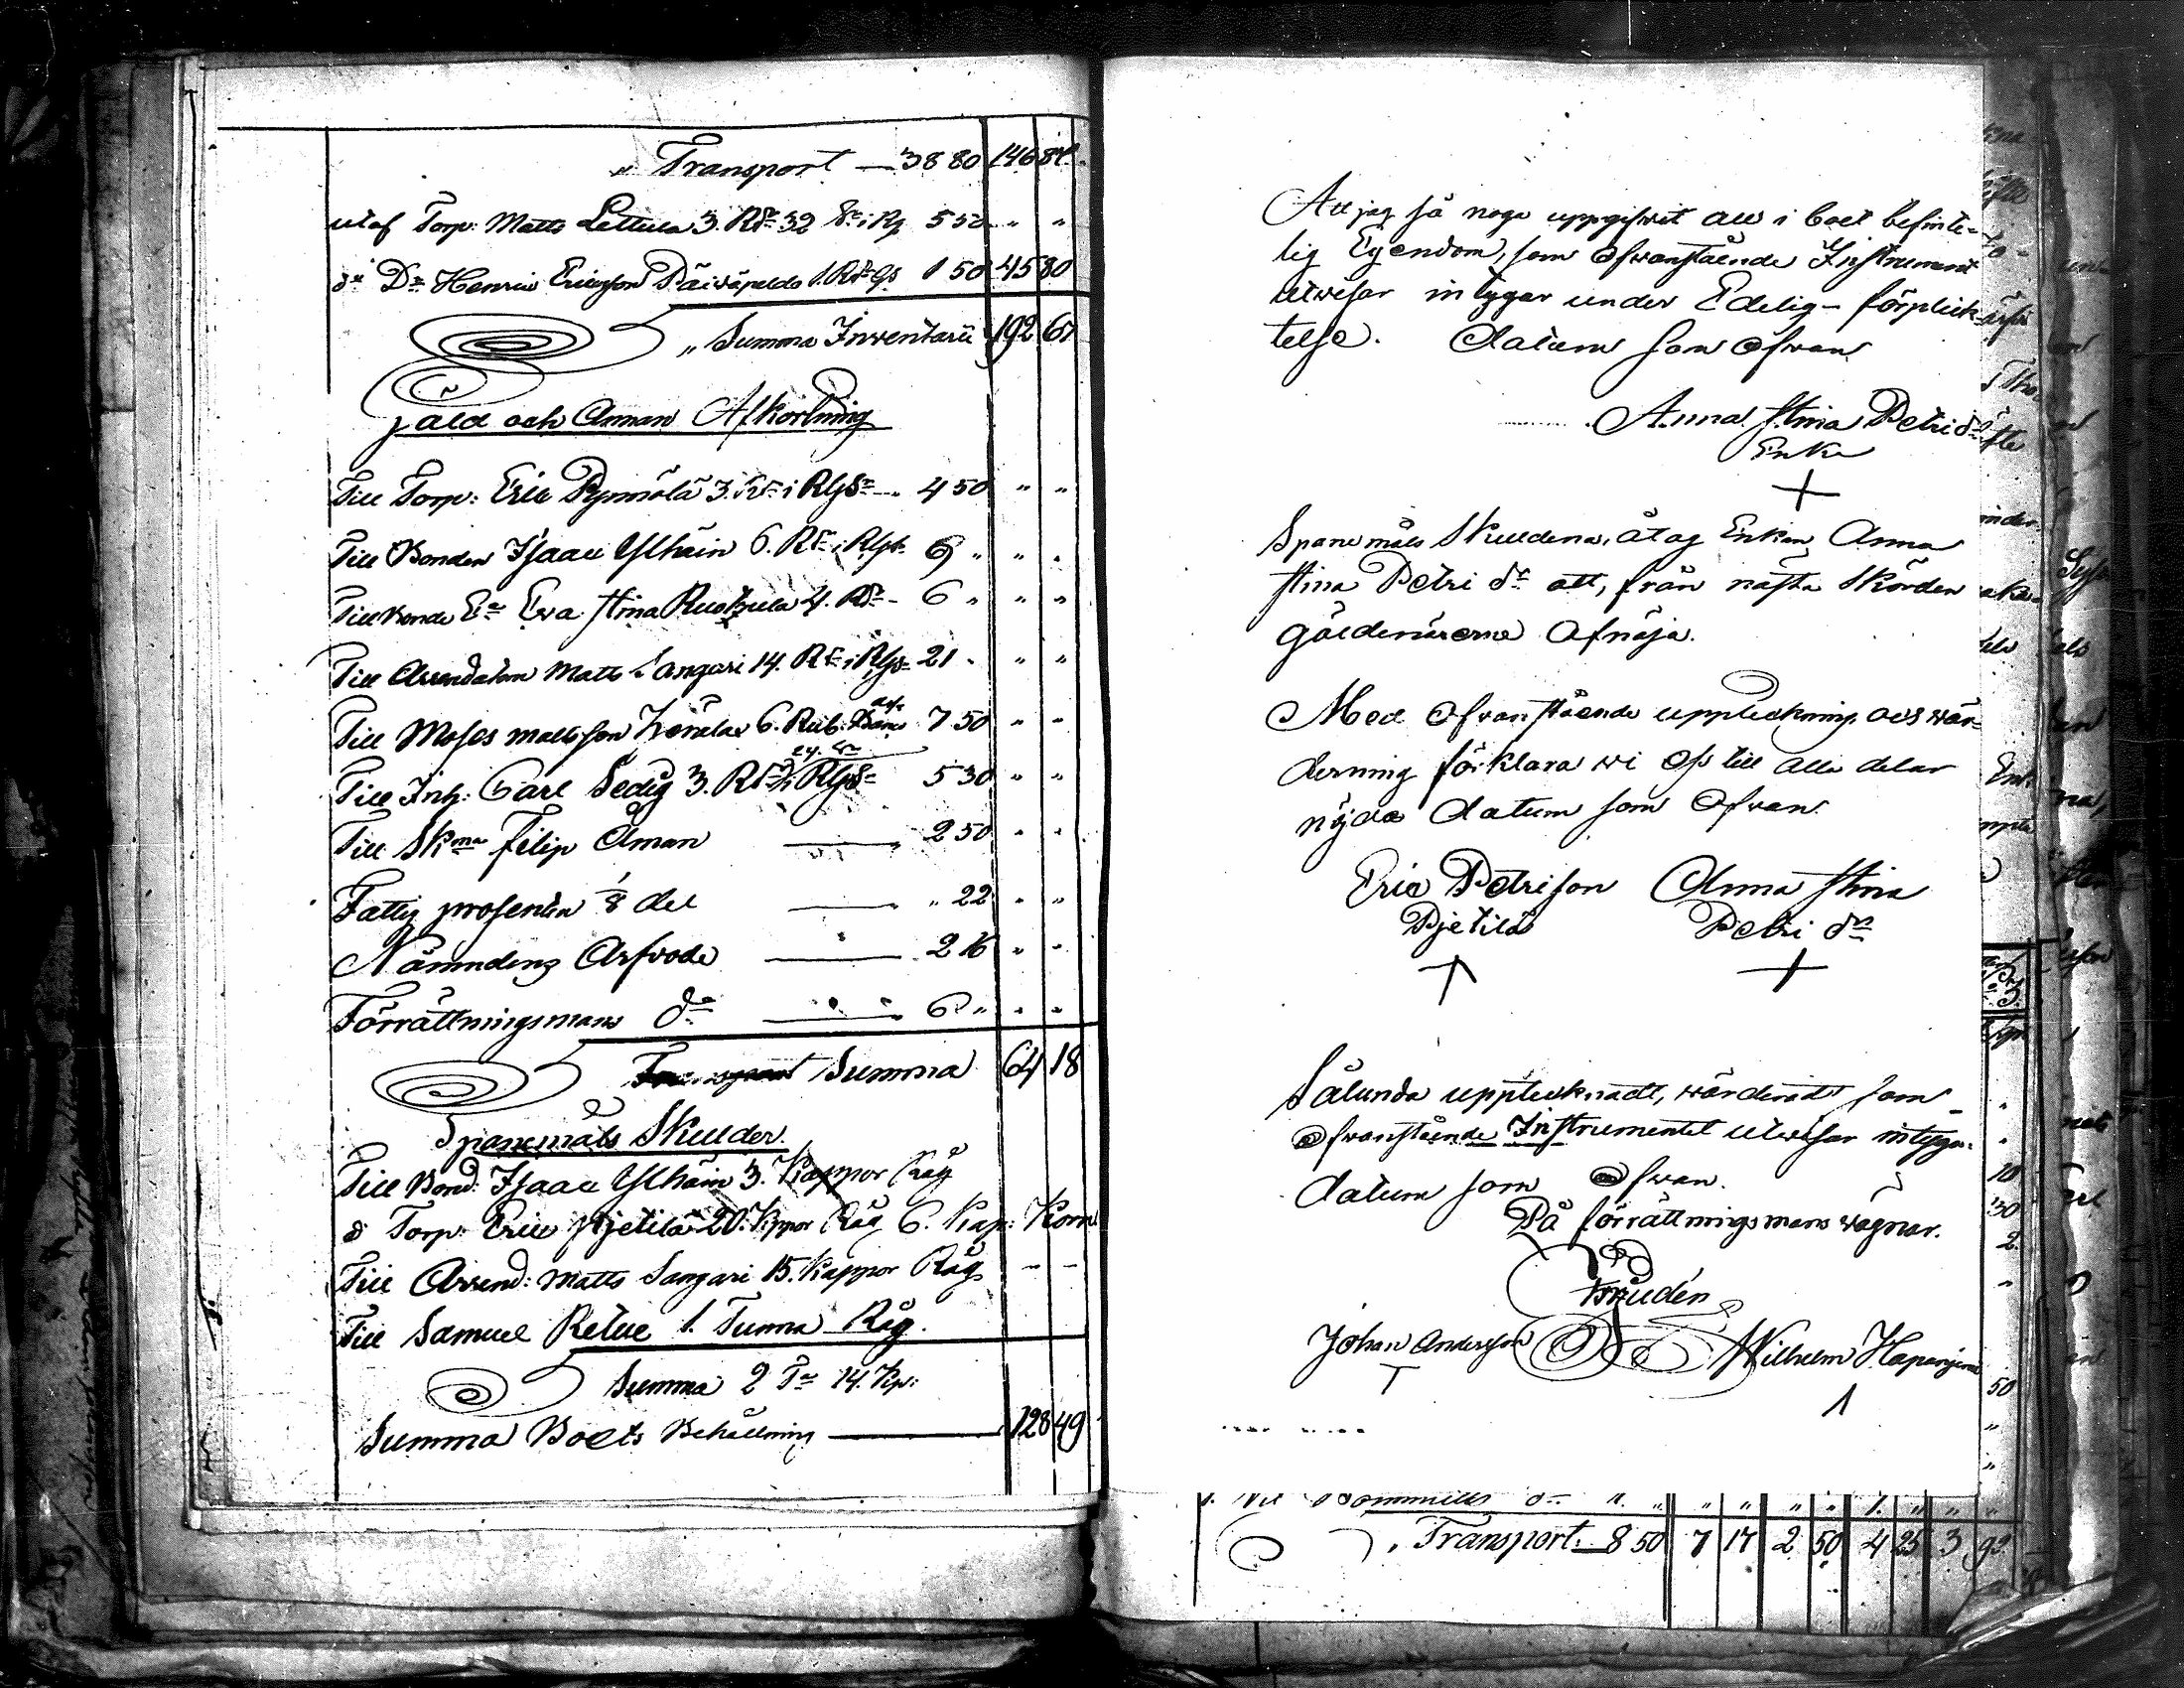 „ Transport — 38 80 146 87
utaf Torp: Matts Lettula 3. Rbr 32 Sr i Rg 5 50 „ „
do Do Henric Ericsson Päiväpeldo 1. Rbr Gs 1 50 45 80
„ Summa Inventarii 192 67
Gäld och Annan Afkortning
Till Torp: Eric Pynnölä 3. Rbr i RgS 4 50 „ „
Till Bonden Isaac Ylhäin 6. Rbr i RgS. 9 „ „ „
Till Bonde Ea Eva Stina 4. Rbr - 6 „ „ „
Till Arendatorn Matts Sangari 14. Rbr i RgS 21 „ „ „
Till Moses Mattsson 6. Rub. 7 50 „ „
Till Inh: Carl Sedig 3. Rbr i RgS 5 30 „ „
Till Skma Filip Åman — 2 50 „ „
Fattig prosenten 1/8 del — „ 22 „ „
Nämndens Arfvode — 2 16 „ „
Förrättningsmans do — 6 „ „ „
Summa 64 18
Spanemåls Skulder.
Till Bond: Isaac Ylhäin 3. Kappor Råg
d Torp: Eric Pjetilä 20. Kppor Råg 6. Kap: Korn
Till Arrend: Matts Sangari 15. Kappor Råg - -
Till Samuel Retue 1. Tunna Råg.
Summa 2 Tr 14. Kp:
Summa Boets Behållning — 128 49
Att jag så noga uppgifvit all i boet befinte-
lig Egendom, som ofvanstående Instrument
utvisar intygar under Edelig- förplick-
telse. datum som ofvan
Anna Stina Petri dr
Enka
+
Spanemåls Skulderna, åtog Enkan Anna
Stina Petri dr att, från nästa Skörden
Gäldenärerne Afnöja.
Med Ofvanstående uppteckning och vär-
dering förklara vi Oss till alla delar
nöjda datum som Ofvan.
Eric Petrison Anna Stina
Pjetilä Petri dr
+
Sålunda upptecknadt, värderadt som
Ofvanstående Instrumentet utvisar intygar.
datum som Ofvan.
På förrättningsmans vägnar.
Johan Andersson Wilhelm
Transport. 8 50 7 17 2 50 4 25 3 92